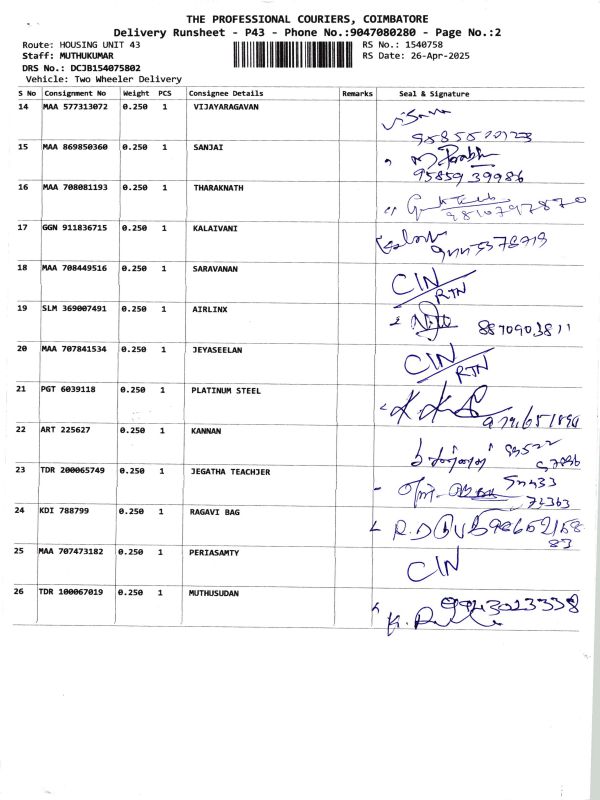 THE PROFESSIONAL COURIERS, COIMBATORE
Delivery Runsheet - P43 - Phone No.:9047080280 - Page No.:2
Route: HOUSING UNIT 43 RS No.: 1540758
Staff: MUTHUKUMAR RS Date: 26-Apr-2025
DRS No.: DCJB154075802
Vehicle: Two Wheeler Delivery
S No Consignment No Weight PCS Consignee Details Remarks Seal & Signature
14 MAA 577313072 0.250 1 VIJAYARAGAVAN
15 MAA 869850360 0.250 1 SANJAI
95859 39986
16 MAA 708081193 0.250 1 THARAKNATH
17 GGN 911836715 0.250 1 KALAIVANI
18 MAA 708449516 0.250 1 SARAVANAN CIN/RTN
19 SLM 369007491 0.250 1 AIRLINX 8870903811
20 MAA 707841534 0.250 1 JEYASEELAN CIN/RTN
21 PGT 6039118 0.250 1 PLATINUM STEEL
22 ART 225627 0.250 1 KANNAN
23 TDR 200065749 0.250 1 JEGATHA TEACHJER
24 KDI 788799 0.250 1 RAGAVI BAG
25 MAA 707473182 0.250 1 PERIASAMTY CIN
26 TDR 100067019 0.250 1 MUTHUSUDAN 9943023338